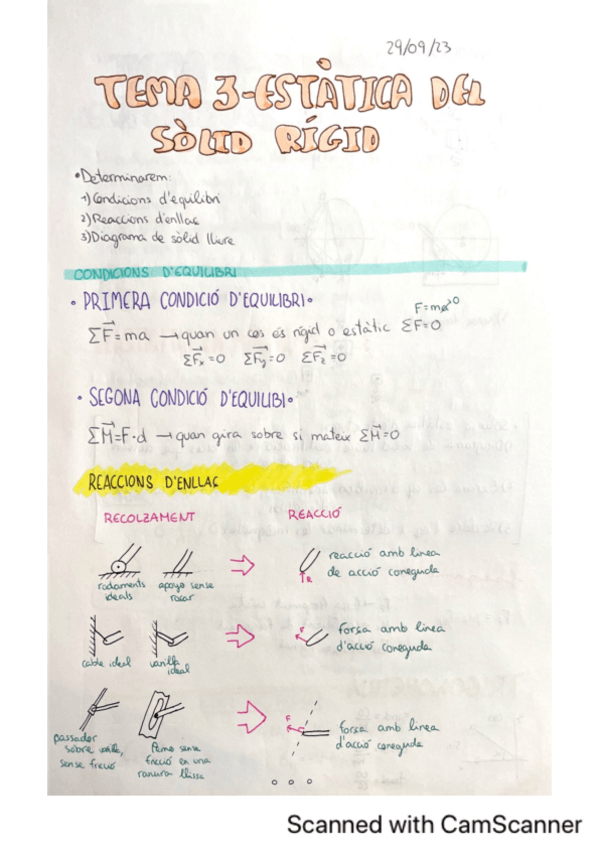 29/09/23
TEMA 3-ESTÀTICA DEL
SÒLID RÍGID
•Determinarem:
1)Condicions d'equilibri
2)Reaccions d'enllaç
3)Diagrama de sòlid lliure
CONDICIONS D'EQUILIBRI
• PRIMERA CONDICIÓ D'EQUILIBRI•
F=ma→0
ΣF⃗=ma →quan un cos és rígid o estàtic ΣF=0
ΣF⃗x=0 ΣF⃗y=0 ΣF⃗z=0
• SEGONA CONDICIÓ D'EQUILIBI•
ΣM⃗=F·d →quan gira sobre si mateix ΣM⃗=0
REACCIONS D'ENLLAÇ
RECOLZAMENT REACCIÓ
rodaments ideals
apoyo sense rozar
R
reacció amb linea
de acció coneguda
cable ideal
varilla ideal
F
força amb linea
d'acció coneguda
passador
sobre
sense fricció
Perno sense
fricció en una
ranura llissa
F
força amb linea
d'acció coneguda
Scanned with CamScanner